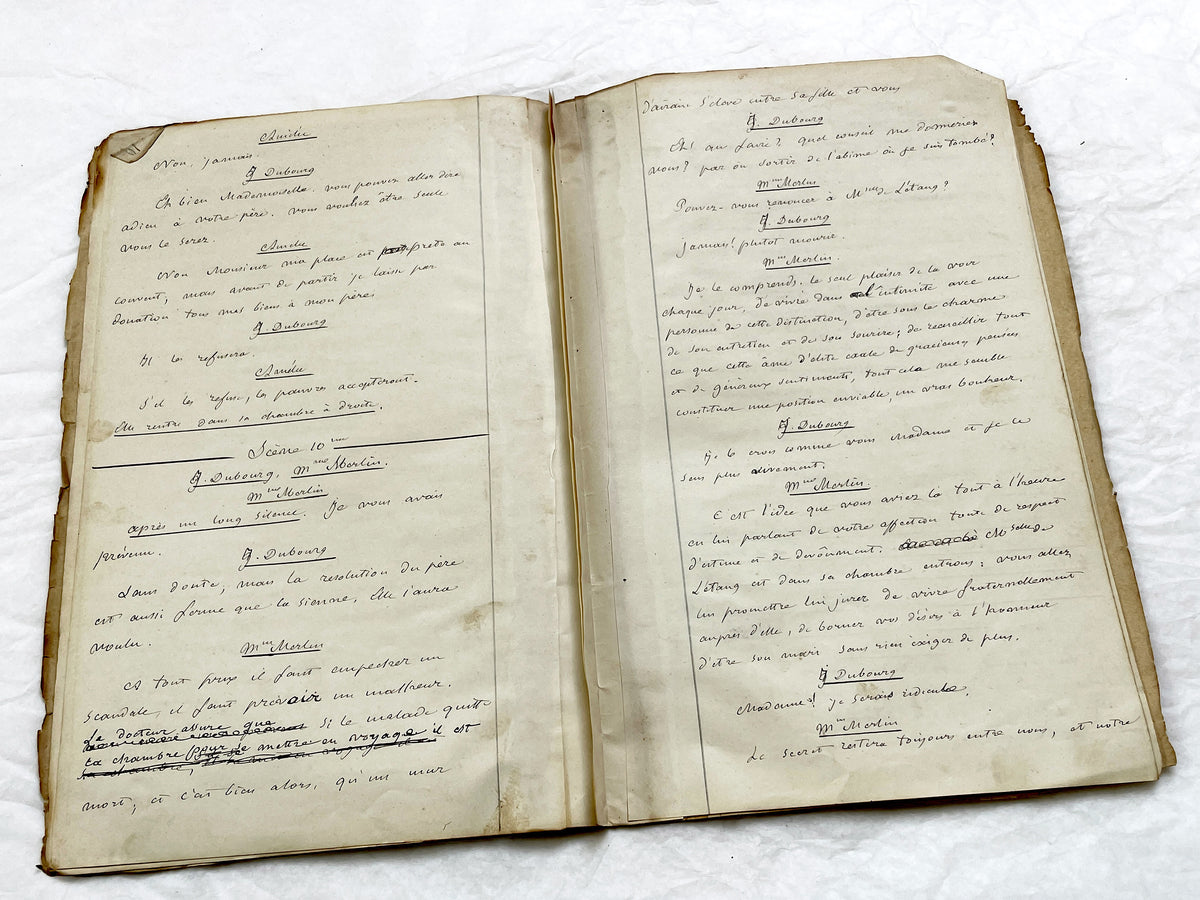 Aimée
Non, jamais.
J. Dubourg
Eh bien Mademoiselle. vous pouvez aller dire
adieu à votre père. vous vouliez être seule
vous le serez.
Aimée
Non Monsieur ma place est prête au
couvent, mais avant de partir je laisse par
donation tous mes biens à mon père
J. Dubourg
Il les refusera.
Aimée
S'il les refuse, les pauvres accepteront.
Elle rentre dans sa chambre à droite.
Scène 10me
J. Dubourg, Mme Merlin.
Mme Merlin
après un long silence. Je vous avais
prévenu.
J. Dubourg
Sans doute, mais la resolution du père
est aussi ferme que la sienne, Elle l'aura
voulu.
Mme Merlin
à tout prix il faut empêcher un
scandale, il faut prévoir un malheur.
Le docteur assure que si le malade quitte
sa chambre pour se mettre en voyage il est
sa chambre,
mort; et c'est bien alors, qu'un mur
d'airain s'élève entre sa fille et vous
J. Dubourg
Et! que faire? quel conseil me donneriez
vous? par où sortir de l'abime où je suis tombé?
Mme Merlin
Pouvez-vous renoncer à Mme de Létang?
J. Dubourg
jamais! plutot mourir.
Mme Merlin.
Je le comprends. le seul plaisir de la voir
chaque jour, de vivre dans l'intimité avec une
personne de cette distinction, d'être sous le charme
de son entretien et de son sourire; de recueillir tout
ce que cette âme d'élite exale de gracieuses pensées
et de généreux sentiments, tout cela me semble
constituer une position enviable, un vrai bonheur.
J. Dubourg
Je le crois comme vous Madame et je le
sens plus vivement.
Mme Merlin.
C'est l'idée que vous aviez là tout à l'heure
en lui parlant de votre affection toute de respect
d'estime et de dévoûment. Melle de
Létang est dans sa chambre entrons; vous allez
lui promettre lui jurez de vivre fraternellement
auprès d'elle, de borner vos désirs à l'honneur
d'être son mari sans rien exiger de plus.
J. Dubourg
Madame! je serais ridicule.
Mme Merlin
Le secret restera toujours entre nous, et notre